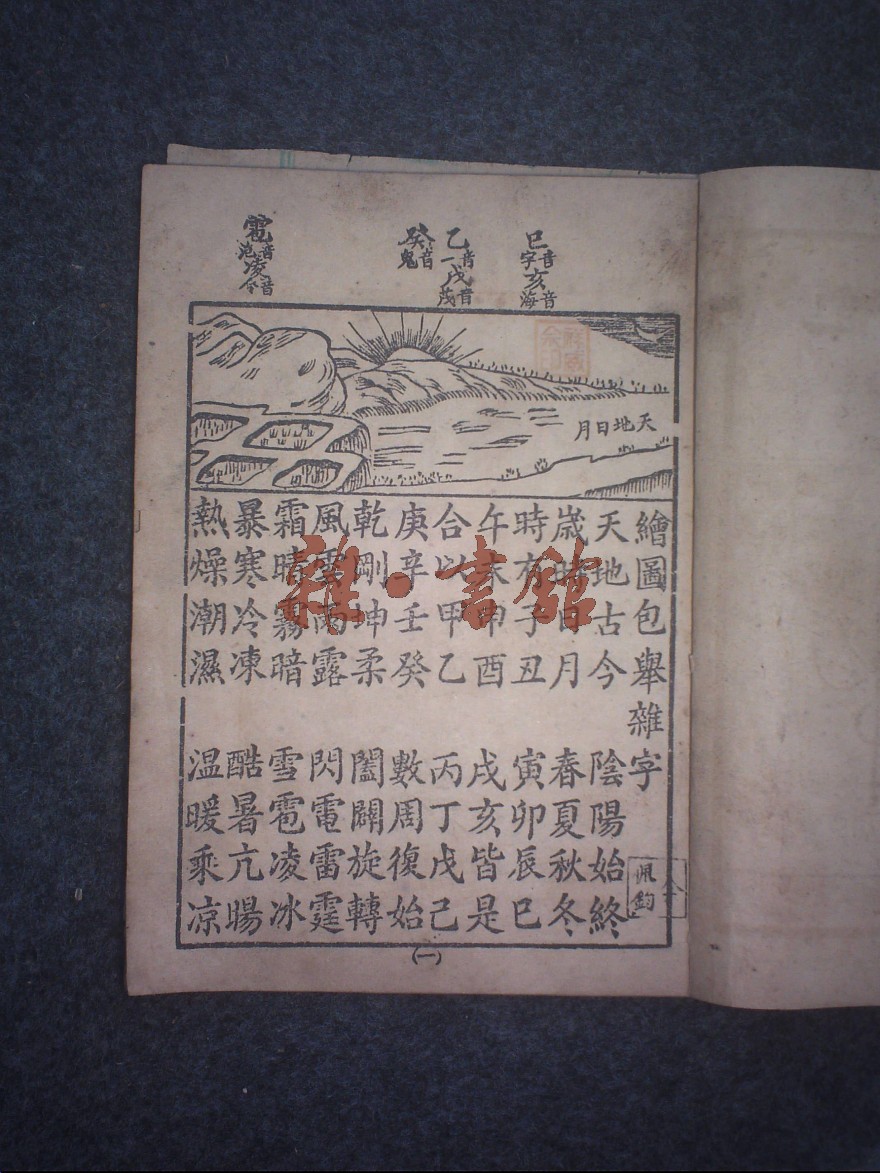 巳音字亥音海
乙音一戊音茂
癸音鬼
雹音泡凌音令
天地日月
繪圖包舉雜字
天地古今 陰陽始終
歲時日月 春夏秋冬
時有子丑 寅卯辰巳
午未申酉 戌亥皆是
合以甲乙 丙丁戊己
庚辛壬癸 數周復始
乾剛坤柔 闔闢旋轉
風雲雨露 閃電雷霆
霜晴霧暗 雪雹凌冰
暴寒冷凍 酷暑亢暘
熱燥潮濕 温暖乘凉
(一)
雜·書館